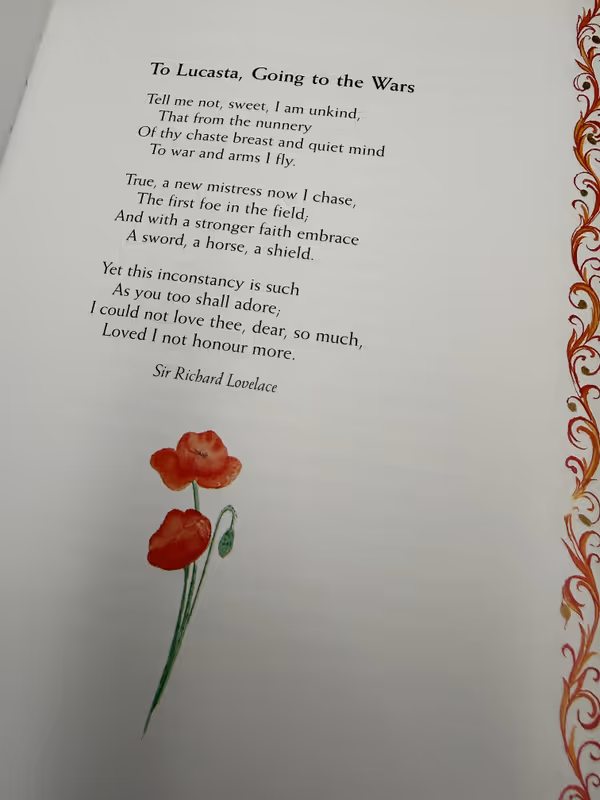 To Lucasta, Going to the Wars
Tell me not, sweet, I am unkind,
That from the nunnery
Of thy chaste breast and quiet mind
To war and arms I fly.
True, a new mistress now I chase,
The first foe in the field;
And with a stronger faith embrace
A sword, a horse, a shield.
Yet this inconstancy is such
As you too shall adore;
I could not love thee, dear, so much,
Loved I not honour more.
Sir Richard Lovelace